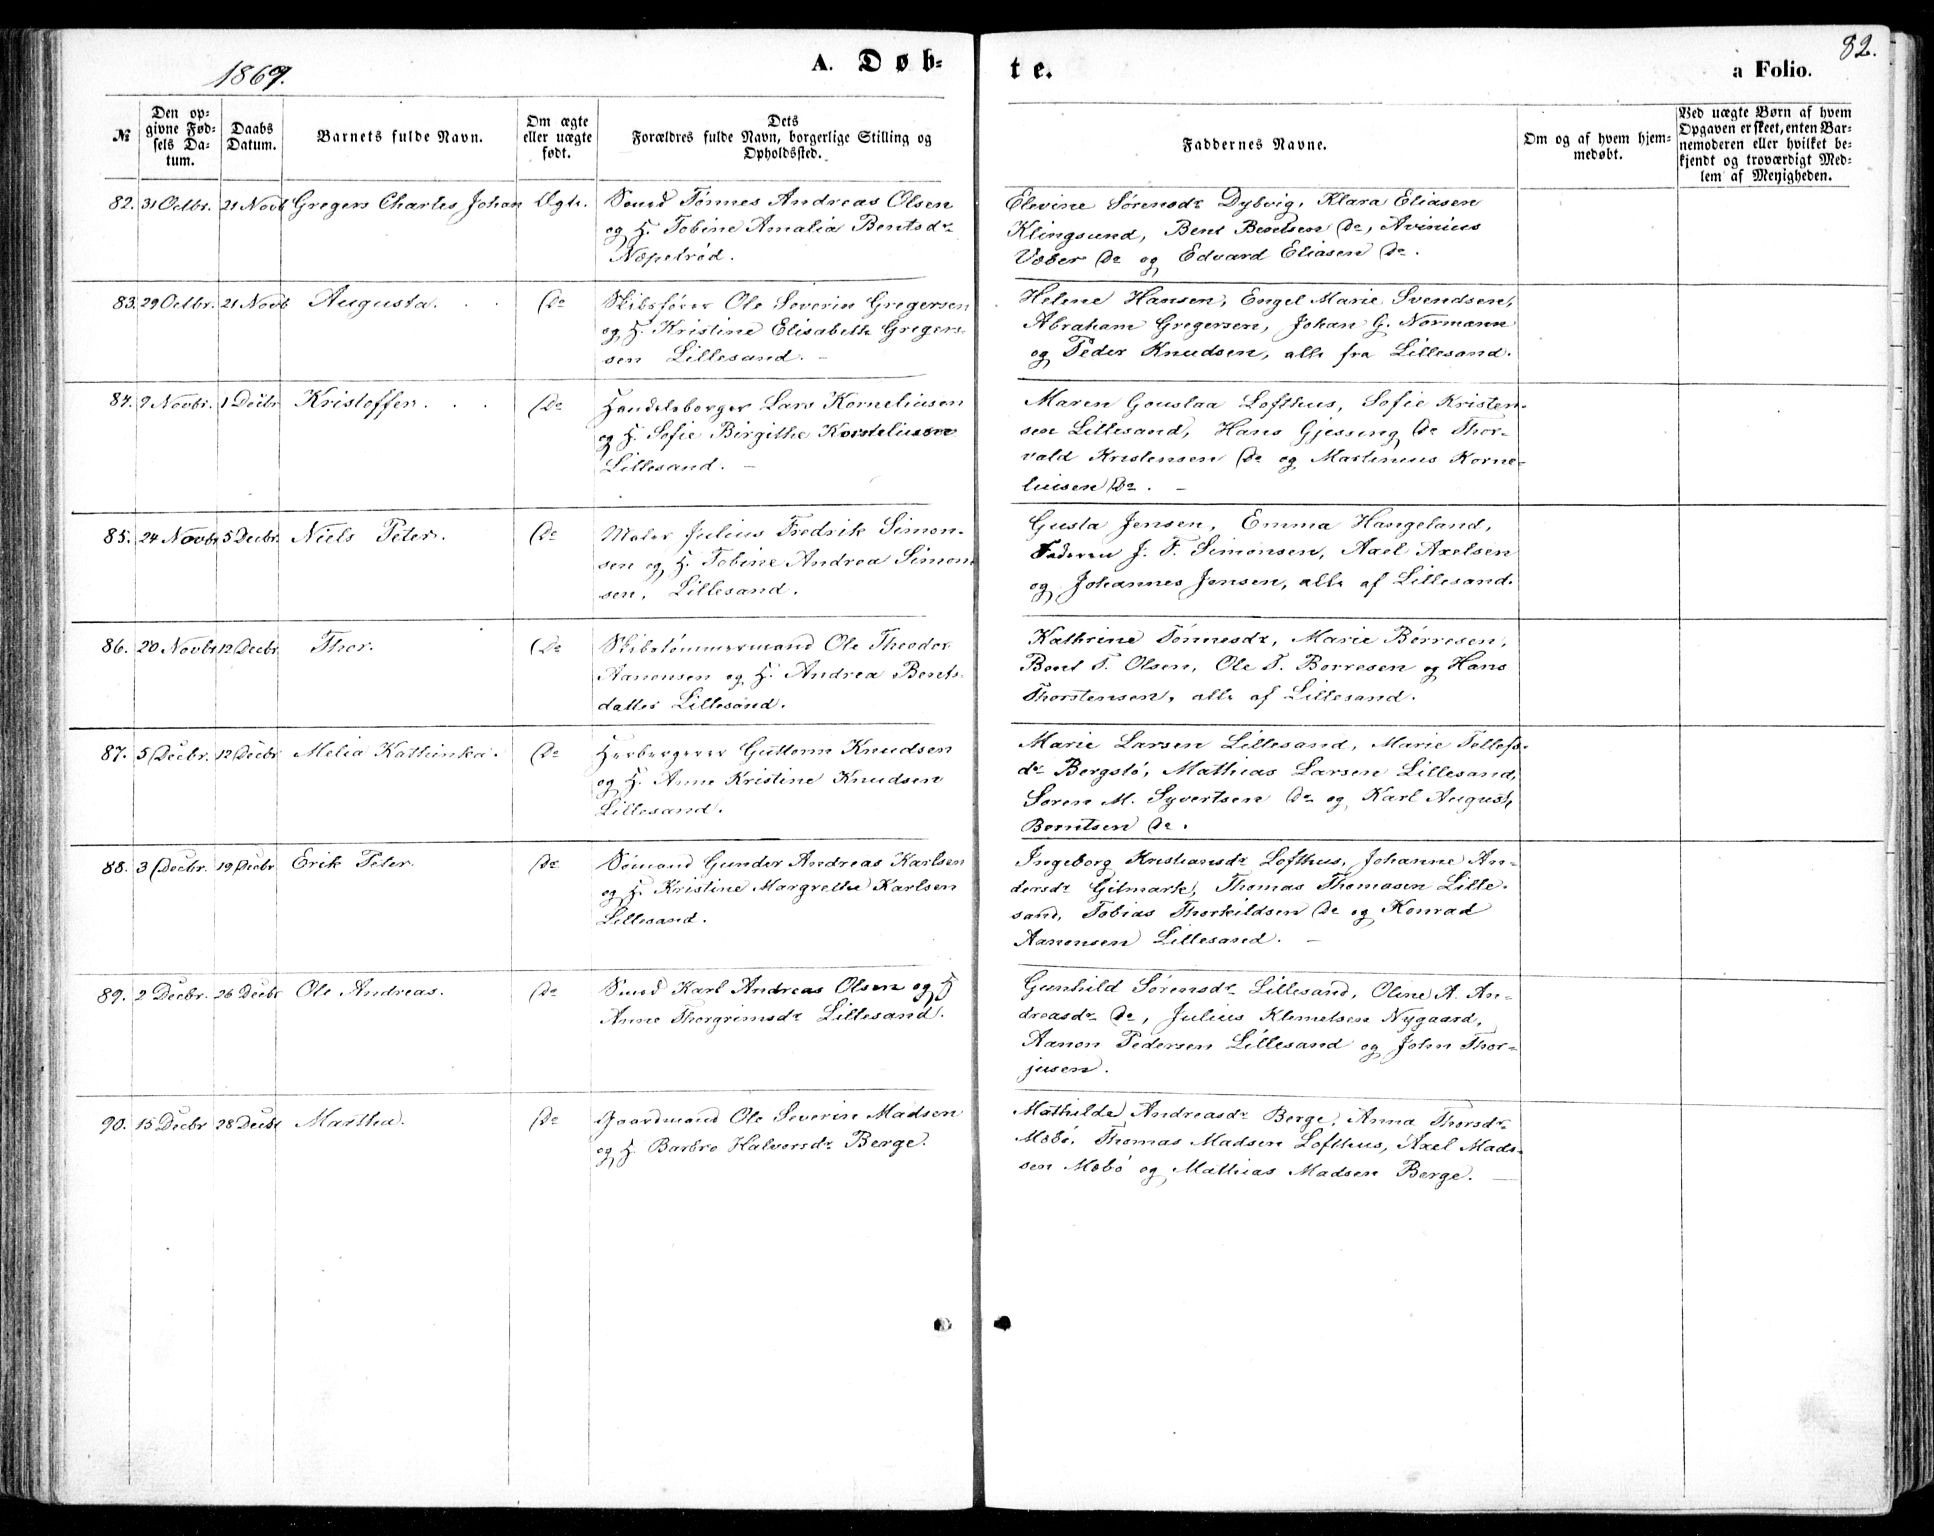 1869.
A. Døb-
te.
a Folio.
82.
№
Den op-
givne Fød-
sels Da-
tum.
Daabs
Datum.
Barnets fulde Navn.
Om ægte
eller uægte
født.
Dets
Forældres fulde Navn, borgerlige Stilling og
Opholdssted.
Faddernes Navne.
Om og af hvem hjem-
medøbt.
Ved uægte Børn af hvem
Opgaven er skeet, enten Bar-
nemoderen eller hvilket be-
kjendt og troværdigt Med-
lem af Menigheden.
82. 31 Octbr. 21 Novb Gregers Charles Johan Ægte. Smed Tönnes Andreas Olsen
og H. Tobine Amalia Bentsdr
Næpelröd.
Elevine Sørensdr Dybvig, Klara Eliasen
Klingsund, Bent Bentsen Do, Avinius
Væber Do og Edvard Eliasen Do.
83. 29 Octbr. 21 Novb Augusta. Do Skibsfører Ole Severin Gregersen
og H. Kristine Elisabeth Gregers-
sen Lillesand. –
Helene Hansen, Engel Marie Svendsen,
Abraham Gregersen, Johan G. Normann
og Peder Knudsen, alle fra Lillesand.
84. 9 Novbr. 1 Decbr Kristoffer. Do Handelsborger Lars Korneliusen
og H. Sofie Birgithe Korneliusen
Lillesand. –
Maren Goustaa Lofthus, Sofie Kristen-
sen Lillesand, Hans Gjessing Do Thor-
vald Kristensen Do og Martinius Korne-
liusen Do. –
85. 24 Novbr. 5 Decbr. Niels Peter. Do Maler Julius Fredrik Simon-
sen og H. Tobine Andrea Simon-
sen, Lillesand.
Gusta Jensen, Emma Haugeland,
Faderen J. F. Simonsen, Axel Axelsen
og Johannes Jensen, alle af Lillesand.
86. 20 Novbr 12 Decbr. Thor. Do Skibstömmermand Ole Theodor
Aanonsen og H. Andrea Bents-
datter Lillesand.
Kathrine Tönnesdr, Marie Börresen,
Bent T. Olsen, Ole T. Borresen og Hans
Thorstensen, alle af Lillesand.
87. 5 Decbr. 12 Decbr Melia Kathinka. Do Herbergerer Guttorm Knudsen
og H. Anne Kristine Knudsen
Lillesand.
Marie Larsen Lillesand, Marie Tellefs-
dr Bergstö, Mathias Larsen Lillesand,
Søren M. Syvertsen Do og Karl August
Berntsen Do.
88. 3 Decbr. 19 Decbr Erik Peter. Do Sömand Gunder Andreas Karlsen
og H. Kristine Margrethe Karlsen
Lillesand.
Ingeborg Kristiansdr Lofthus, Johanne An-
dersdr Gitmark, Thomas Thomasen Lille-
sand, Tobias Thorkildsen Do og Konrad
Aanonsen Lillesand. –
89. 2 Decbr. 26 Decbr Ole Andreas. Do Smed Karl Andreas Olsen og H
Anne Thorgrimsdr Lillesand.
Gunhild Sørensdr Lillesand, Oline A. An-
dreasdr Do, Julius Klemetsen Nygaard,
Aanon Pedersen Lillesand og John Thor-
jusen.
90. 15 Decbr 28 Decbr Martha. Do Gaardmand Ole Severin Madsen
og H. Barbro Halvorsdr Berge.
Mathilde Andreasdr Berge, Anna Thorsdr
Mæbö, Thomas Madsen Lofthus, Axel Mads-
sen Mæbö og Mathias Madsen Berge. –